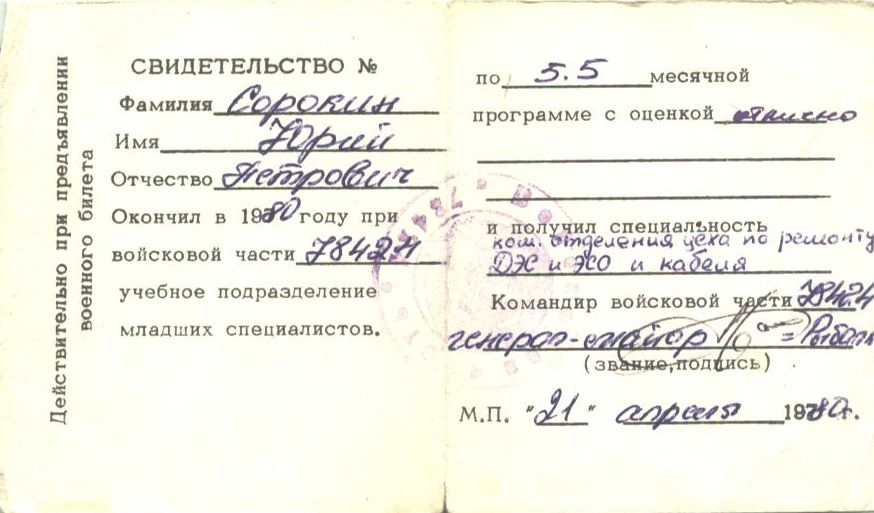 Действительно при предъявлении
военного билета
СВИДЕТЕЛЬСТВО №
Фамилия Сорокин
Имя Юрий
Отчество Петрович
Окончил в 1980 году при
войсковой части 78424
учебное подразделение
младших специалистов.
по 5.5 месячной
программе с оценкой отлично
и получил специальность
ком. отделения цеха по ремонту
ДЭС и ЭСО и кабеля
Командир войсковой части 78424
генерал-майор
(звание,подпись)
М.П. "21" апреля 1980г.